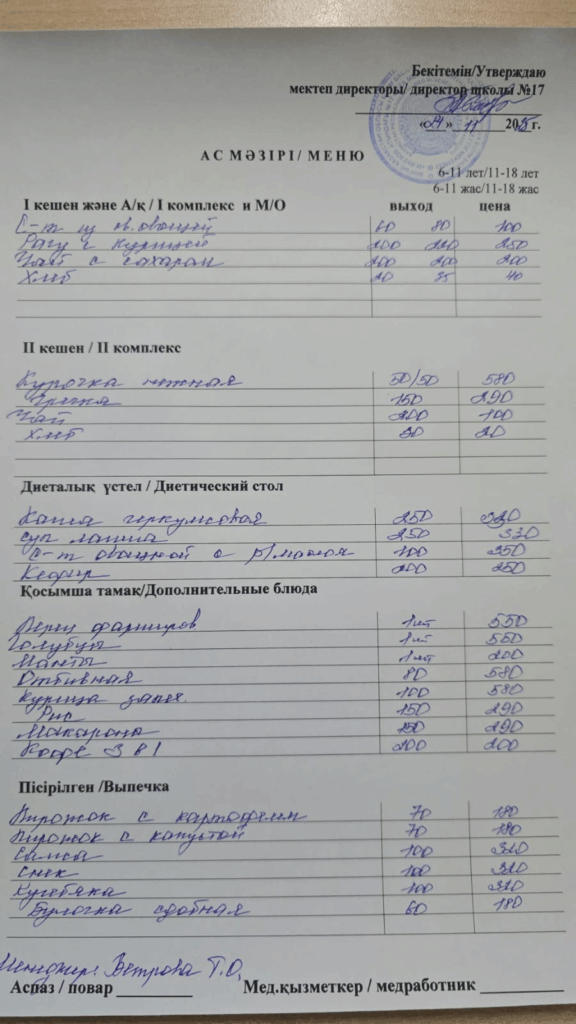 Бекітемін/Утверждаю
мектеп директоры/ директор школы №17
«24» 11 2025г.
АС МӘЗІРІ/ МЕНЮ
6-11 лет/11-18 лет
6-11 жас/11-18 жас
I кешен және А/қ / I комплекс и М/О выход цена
С-т из св.овощей 60 80 100
Рагу с курицей 200 220 250
Чай с сахаром 200 200 200
Хлеб 20 35 40
II кешен / II комплекс
Курочка нежная 50/50 580
Гречка 150 290
Чай 200 100
Хлеб 30 20
Диеталық үстел / Диетический стол
Каша геркулесовая 250 320
суп лапша 250 330
С-т овощной с р/маслом 100 350
Кефир 200 250
Қосымша тамақ/Дополнительные блюда
Перец фарширов 1шт 550
Голубцы 1шт 550
Манты 1шт 200
Отбивная 80 580
Курица запеч. 100 580
Рис 150 290
Макароны 150 290
Кофе 3 в 1 200 200
Пісірілген /Выпечка
Пирожок с картофелем 70 180
Пирожок с капустой 70 180
Самса 100 320
Снек 100 320
Кулебяка 100 320
Булочка сдобная 60 180
Менеджер: Ветрова Т.О.
Аспаз / повар Мед.қызметкер / медработник